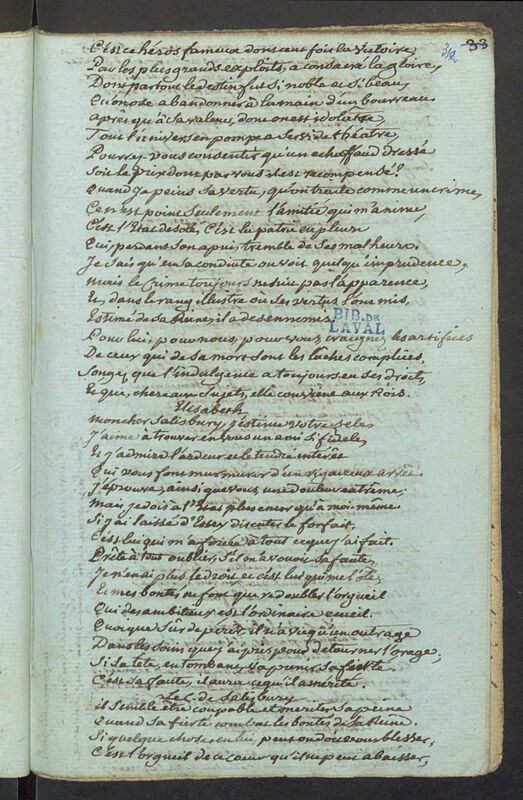 33
C'est ce héros fameux dont cent fois la victoire,
Par les plus grands exploits, a consacré la gloire,
Dont partout le destin fut si noble et si beau,
Qu'on ose abandonner à la main d'un bourreau
après qu'à sa valeur, dont on est idolâtre,
Tout l'univers en pompe a servi de théatre,
Pourrez vous consentir qu'un echaffaud dressé
Soit le prix dont par vous il est recompensé?
Quand je peins sa vertu, qu'on traite comme un crime,
Ce n'est point seulement l'amitié qui m'anime,
C'est l'Etat desolé, C'est la patrie en pleurs
Qui, perdant son apui, tremble de ses malheurs.
Je sais qu'en sa conduite on voit quelqu'imprudence,
mais le Crime toujours ne suit pas l'apparence,
Et, dans le rang illustre où ses vertus l'ont mis,
Estimé de sa Reine, il a des ennemis.
BIB. DE
LAVAL
Pour lui, pour nous, pour vous, craignez les artifices
De ceux qui de sa mort sont les laches complices.
Songez que l'indulgence a toujours eu ses droits
Et que, chere aux sujets, elle convient aux Rois.
Elisabeth
mon cher Salisbury, j'estime votre zele
J'aime à trouver en vous un ami si fidele,
Et j'admire l'ardeur et le tendre interêt
Qui vous font murmurer d'un rigoureux arrêt
J'éprouve, ainsi que vous, une douleur extrême;
mais je dois à l'Etat plus encor qu'à moi-même.
Si j'ai laissé d'Essex discuter le forfait,
C'est lui qui m'a forcée à tout ce que j'ai fait.
Prête à tout oublier, s'il on avouoit sa faute,
Je n'en ai plus le droit et c'est lui qui me l'ôte,
Et mes bontés ne font que redoubler l'orgueil
Qui des ambitieux est l'ordinaire ecueil.
Quoique sûr de périr, il n'a vu qu'un outrage
Dans les soins que j'ai pris pour détourner l'orage,
Si sa tête, en tombant, va punir sa fierté
C'est sa faute, il aura ce qu'il a mérité.
Le C. de Salisbury
il semble être coupable et meriter sa peine
Quand sa fierté combat les bontés de sa Reine.
Si quelque chose en lui, peut ou doit vous blesser,
C'est l'orgueil de ce cœur qu'il ne peut abaisser,